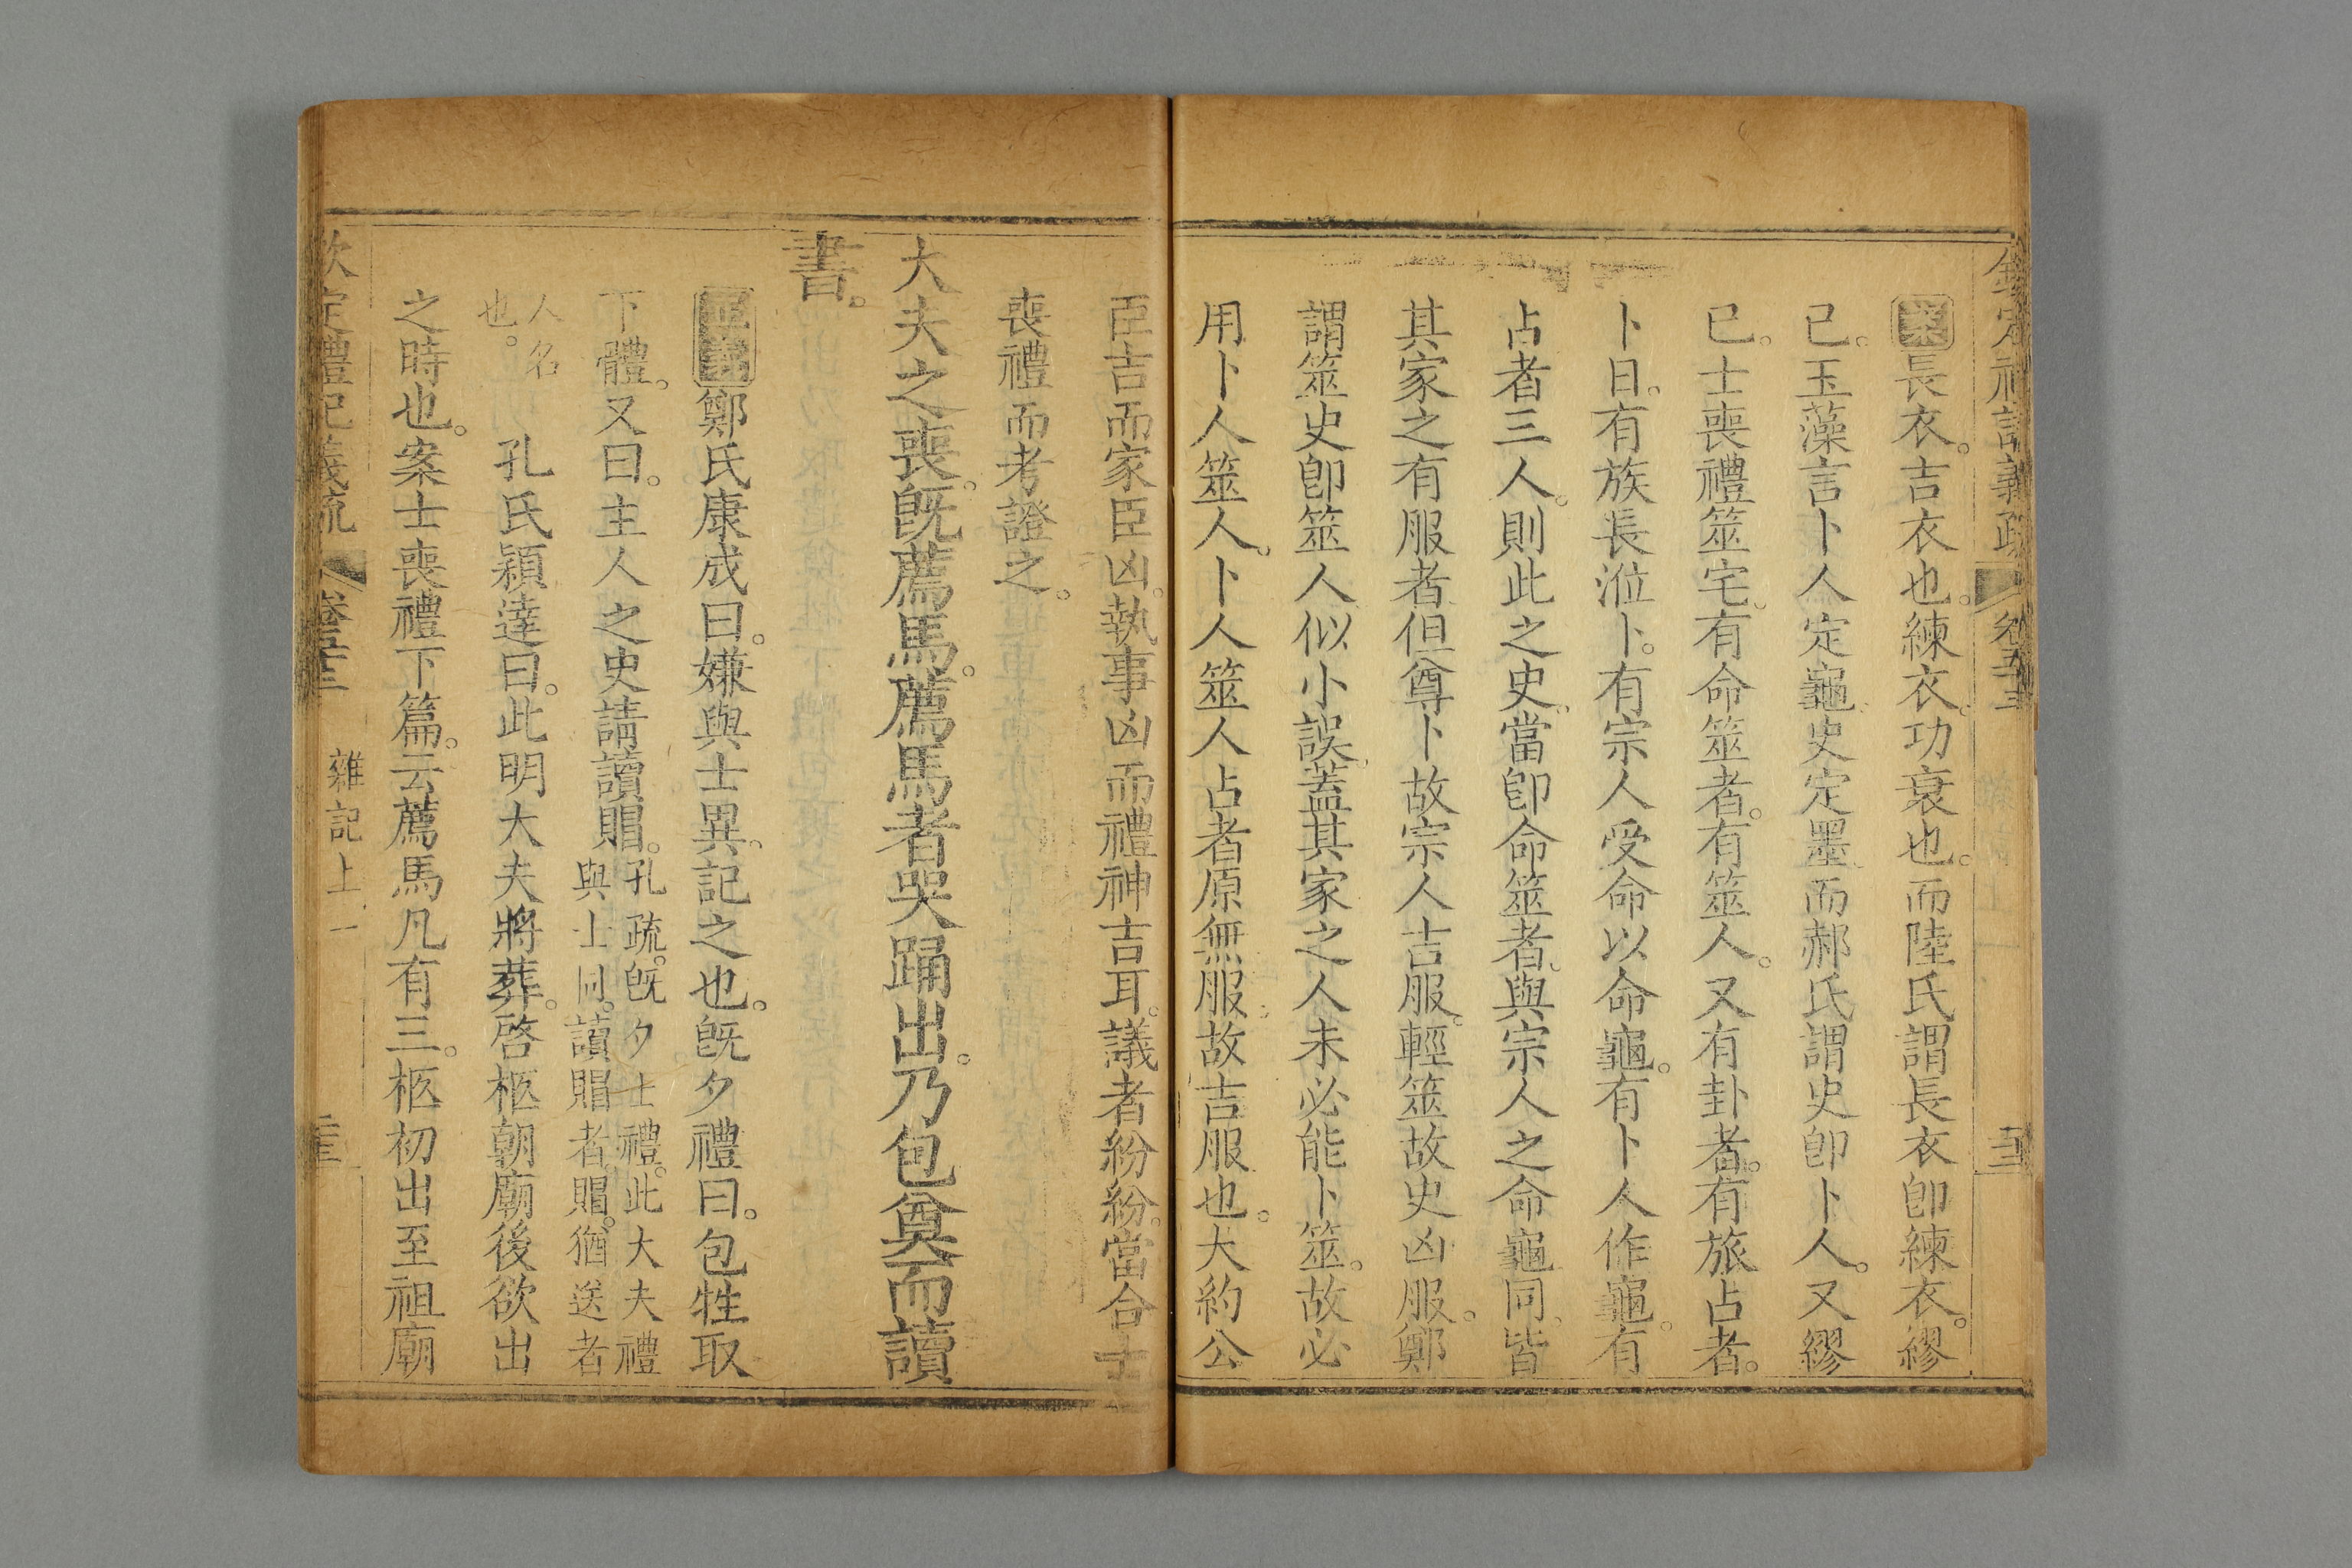 案長衣。吉衣也。練衣。功衰也。而陸氏謂長衣卽練衣。繆
已。玉藻言卜人定龜。史定墨。而郝氏謂史卽卜人。又繆
已。士喪禮筮宅。有命筮者。有筮人。又有卦者。有旅占者。
卜日。有族長涖卜。有宗人受命以命龜。有卜人作龜。有
占者三人。則此之史。當卽命筮者。與宗人之命龜同。皆
其家之有服者但尊卜故宗人吉服。輕筮故史凶服。鄭
謂筮史卽筮人似小誤。蓋其家之人未必能卜筮。故必
用卜人筮人。卜人筮人占者原無服故吉服也。大約公
臣吉而家臣凶。執事凶而禮神吉耳。議者紛紛。當合士
喪禮而考證之。
大夫之喪。旣薦馬。薦馬者哭踊出。乃包奠而讀
書。
正義鄭氏康成曰。嫌與士異。記之也。旣夕禮曰。包牲取
下體。又曰。主人之史請讀賵。孔疏。旣夕士禮。此大夫禮
與士同。讀賵者。賵。猶送者
人名
也。
孔氏穎達曰。此明大夫將葬。啓柩朝廟後欲出
之時也。案士喪禮下篇。云薦馬凡有三。柩初出至祖廟
欽定禮記義疏 卷五十三 雜記上一